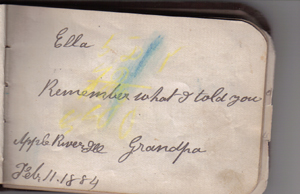 Ella
Remember what I told you
Grandpa
Apple River Ill
Feb 11. 1884